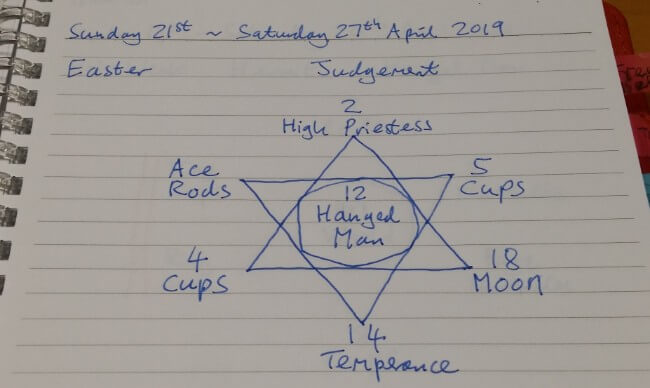 Sunday 21st ~ Saturday 27th April 2019
Easter Judgement
2
High Priestess
Ace
Rods
5
Cups
12
Hanged
Man
4
Cups
18
Moon
14
Temperance